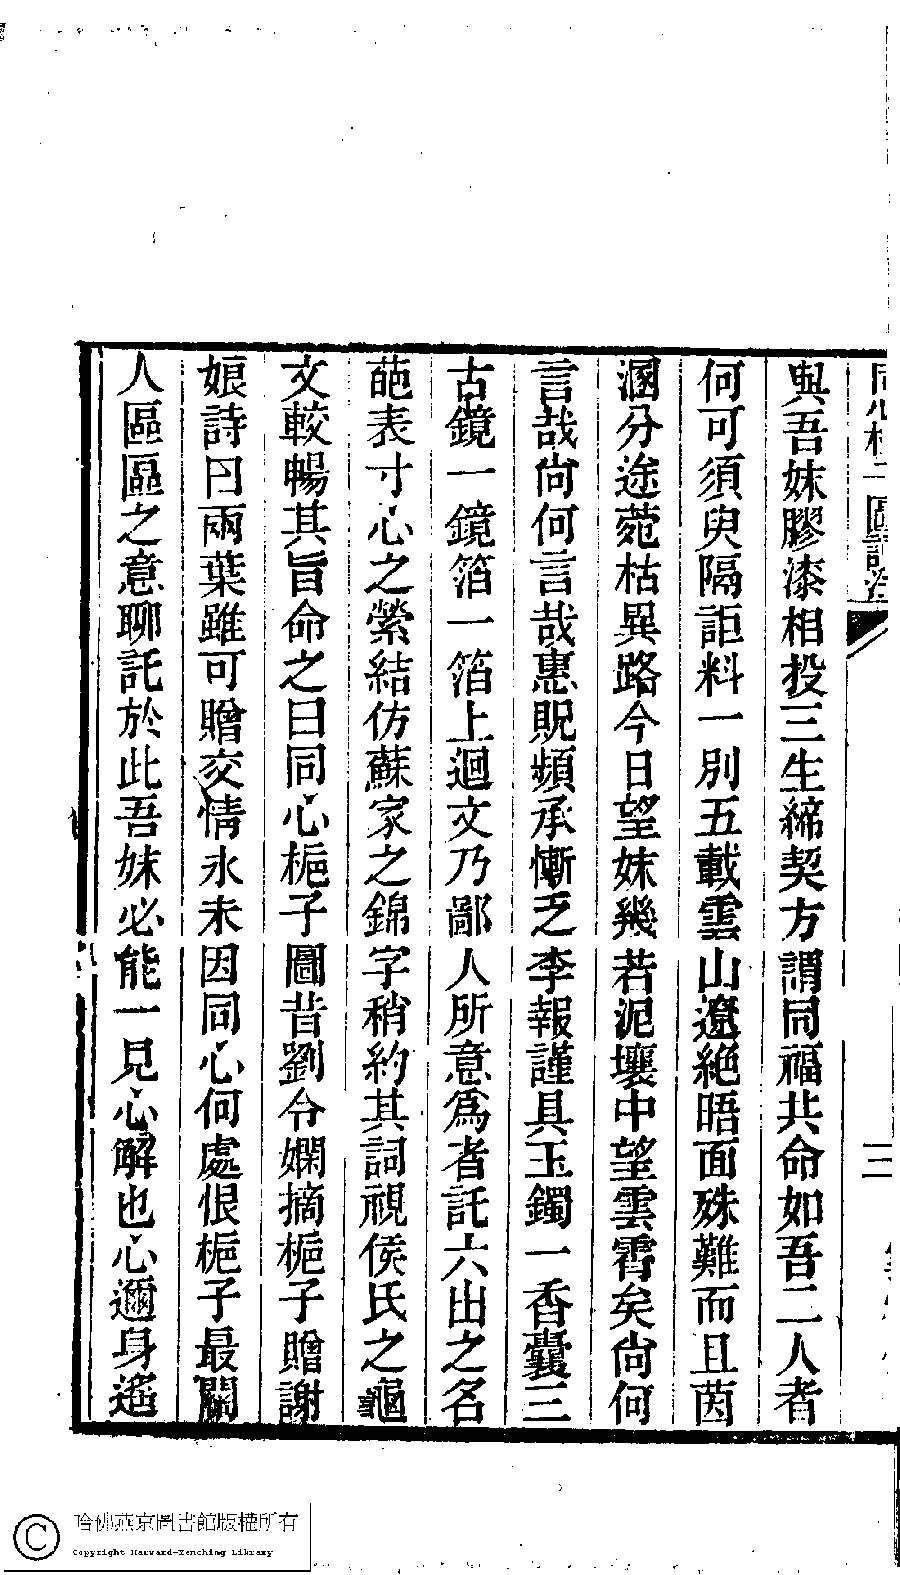 與吾妹膠漆相投三生締契方謂同福共命如吾二人者
何可須臾隔詎料一別五載雲山遼絕晤面殊難而且茵
溷分途菀枯異路今日望妹幾若泥壤中望雲霄矣尙何
言哉尙何言哉惠貺頻承慚乏李報謹具玉鐲一香囊三
古鏡一鏡箔一箔上迴文乃鄙人所意爲者託六出之名
葩表寸心之縈結仿蘇家之錦字稍約其詞視侯氏之龜
文較暢其旨命之曰同心梔子圖昔劉令嫻摘梔子贈謝
娘詩曰兩葉雖可贈交情永未因同心何處恨梔子最關
人區區之意聊託於此吾妹必能一見心解也心邇身遙
二
哈佛燕京圖書館版權所有
Copyright Harvard-Yenching Library